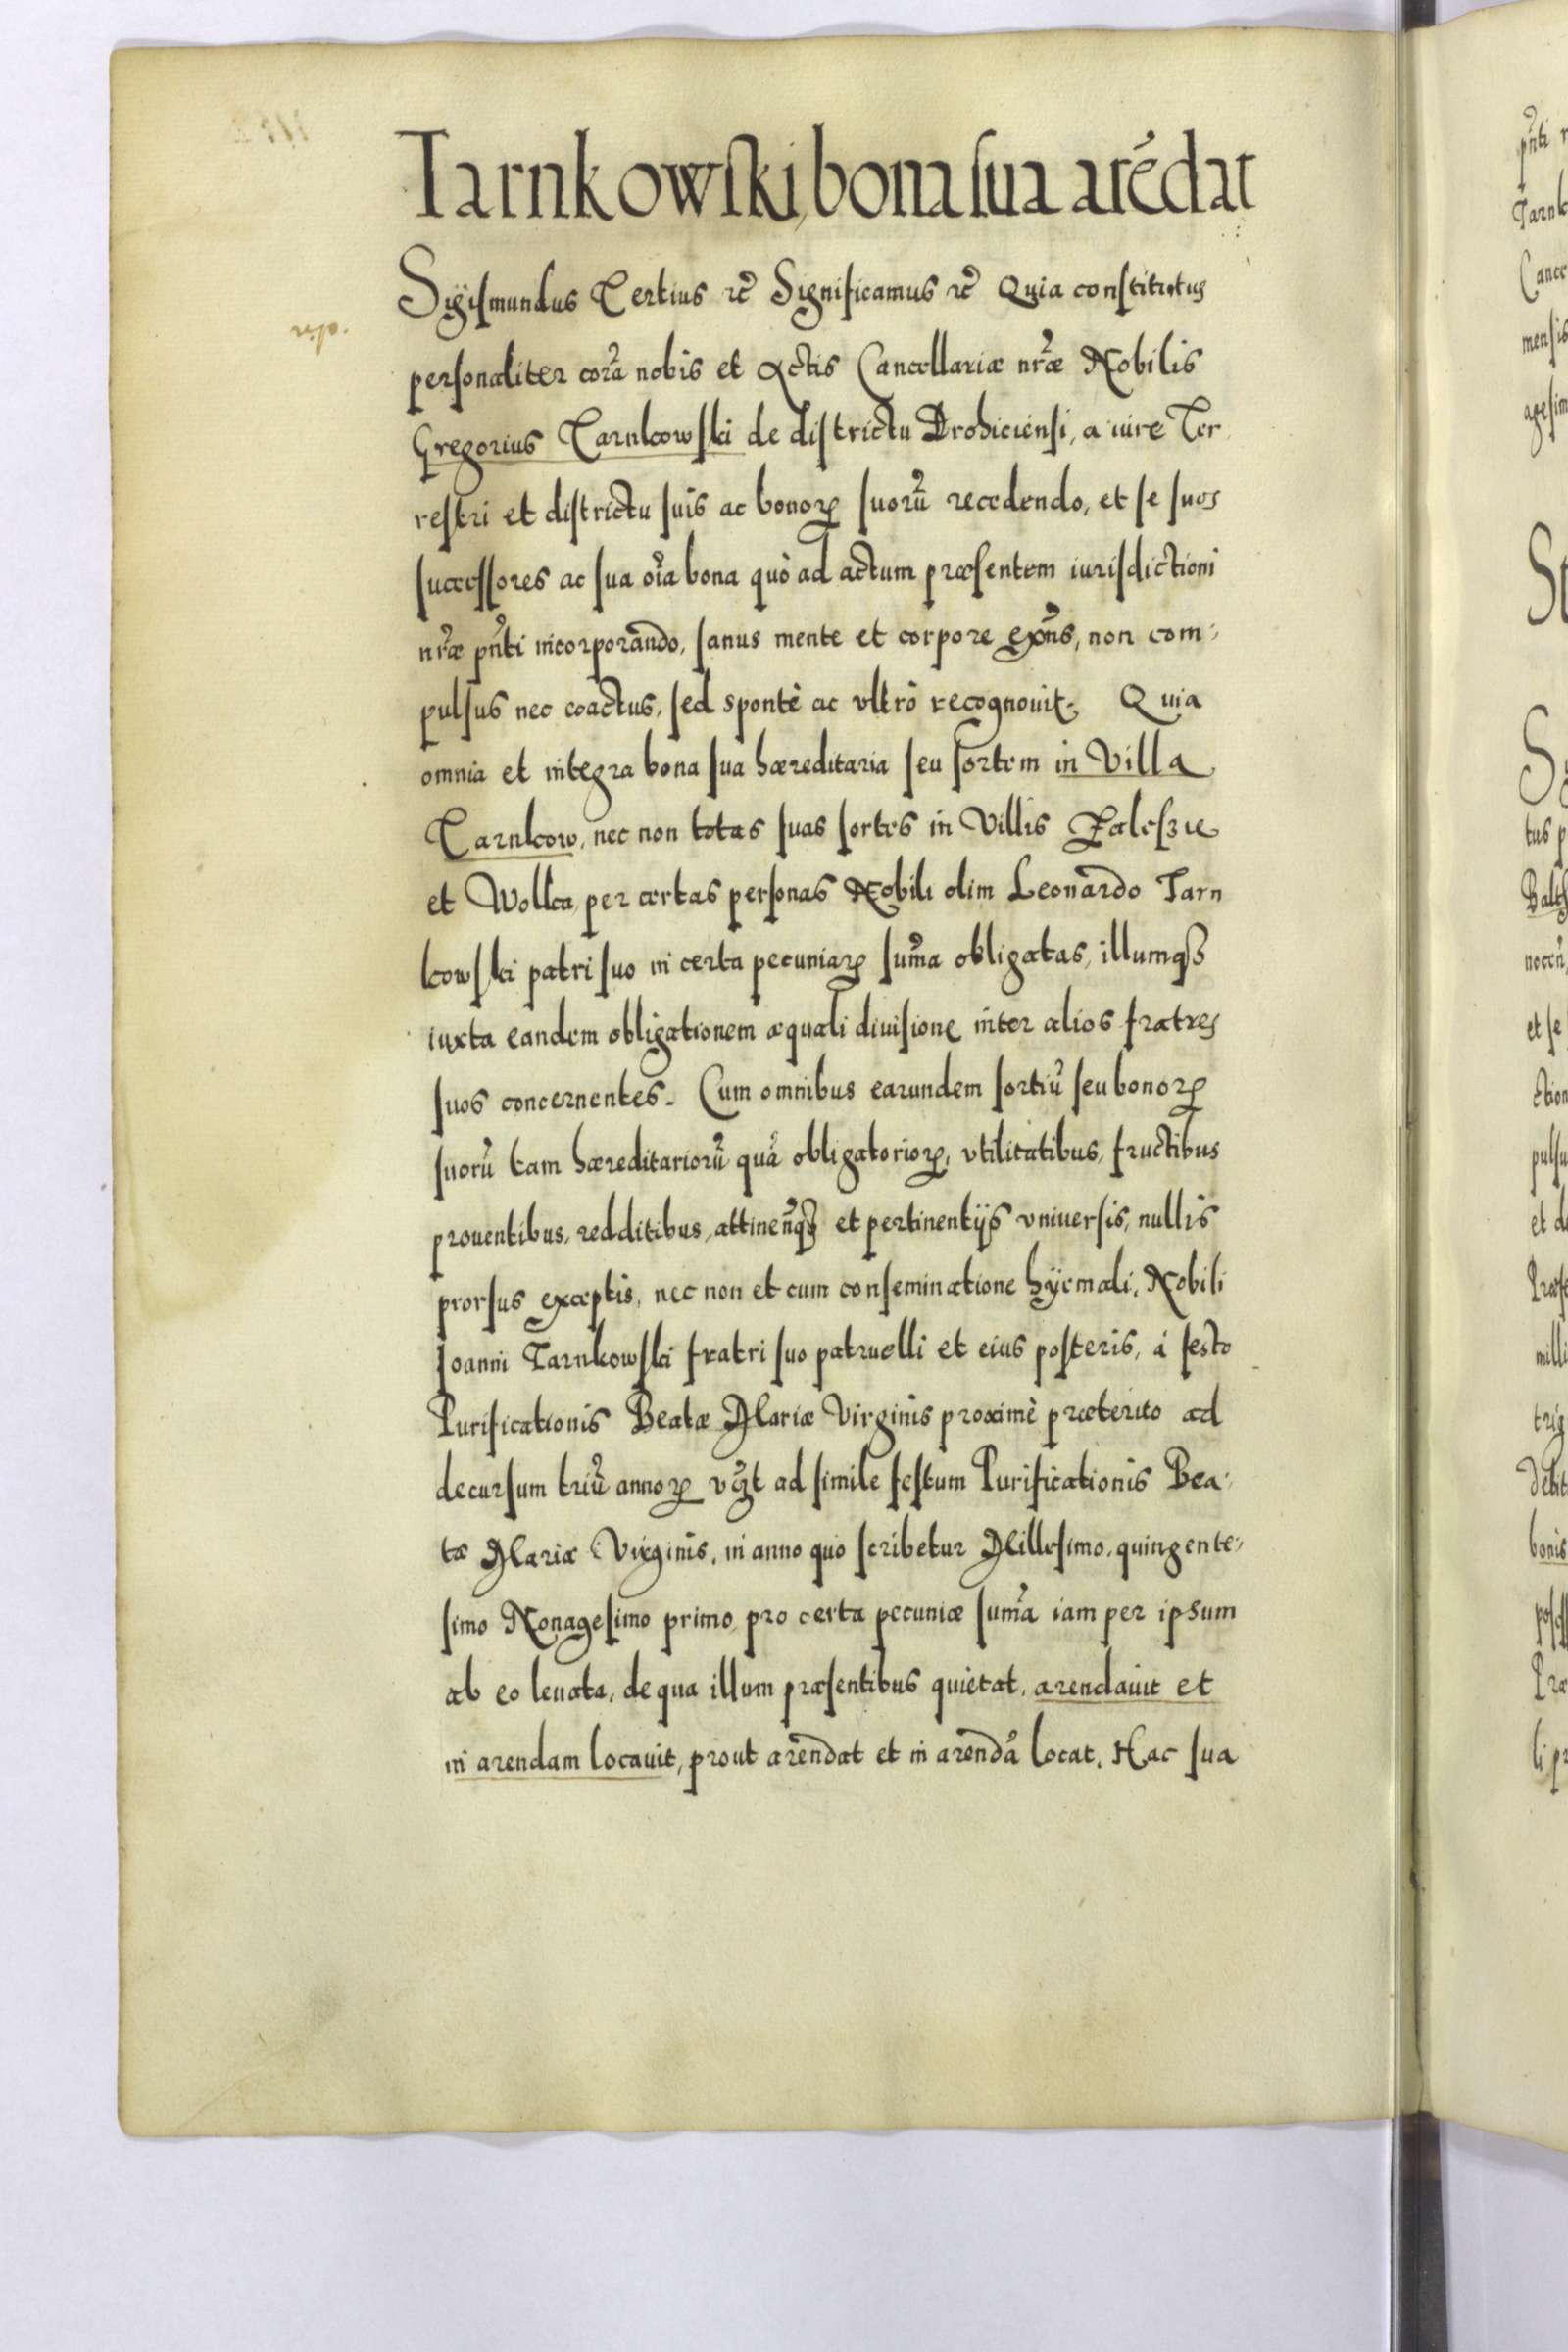 Tarnkowſki, bona ſua arēdat
Sÿgiſmundus Tertius ꝛc̃ Significamus ꝛc̃ Quia conſtitutus
perſonaliter corã nobis et Actis Cancellariæ nrãe Nobilis
Gregorius Tarnkowſki de diſtrictu Drohiciensi, a iure Ter
reſtri et diſtrictu ſuis ac bonoꝝ ſuorũ recedendo, et ſe ſuos
ſucceſſores ac ſua oĩa bona quò ad actum præſentem iuriſdictioni
nrãe pñti incorporando, ſanus mente et corpore exñs, non com-
pulſus nec coactus, ſed spontè ac vltrò recognouit. Quia
omnia et integra bona ſua hæreditaria ſeu ſortem in Villa
Tarnkow, nec non totas ſuas ſortes in Villis Zaleſzie
et Wolka per certas perſonas Nobili olim Leonardo Tarn
kowſki patri ſuo in certa pecuniaꝝ ſum̃a obligatas, illumqꝫ
iuxta eandem obligationem æquali diuiſione inter alios fratres
ſuos concernentes. Cum omnibus earundem ſortiũ ſeu bonoꝝ
ſuorũ tam hæreditariorũ quã obligatorioꝝ, vtilitatibus, fructibus
prouentibus, redditibus, attineñqꝫ et pertinentijs vniuerſis, nullis
prorſus exceptis, nec non et cum conſeminatione hÿemali, Nobili
Joanni Tarnkowſki fratri ſuo patruelli et eius poſteris, á feſto
Purificationis Beatæ Mariæ Virginis proximè præterito ad
decurſum triũ annoꝝ vꝫt ad ſimile feſtum Purificationis Bea-
tæ Mariæ Virginis, in anno quo ſcribetur Milleſimo, quingente-
ſimo Nonageſimo primo pro certa pecuniæ ſum̃a iam per ipsum
ab eo leuata, de qua illum præſentibus quietat, arendauit et
in arendam locauit, prout arendat et in arendã locat. Hac ſua